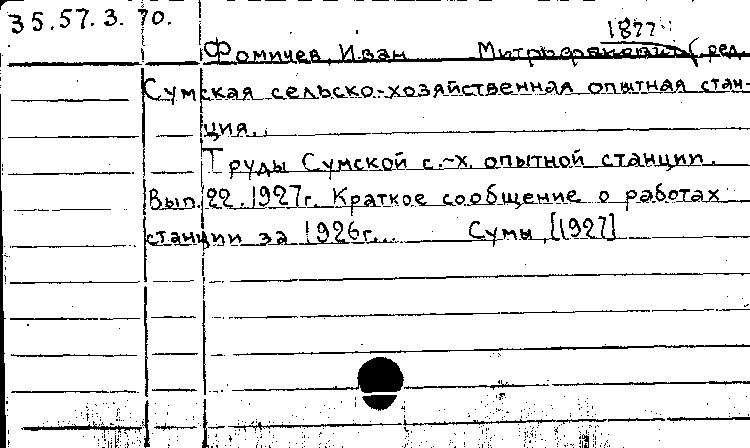 35.57.3.70.
1877
Фомичев, Иван (ред.
Сумская сельско-хозяйственная опытная стан-
ция..
Труды Сумской с.-х. опытной станции.
Вып. 22. 1927г. Краткое сообщение о работах
станции за 1926г... Сумы, [1927]